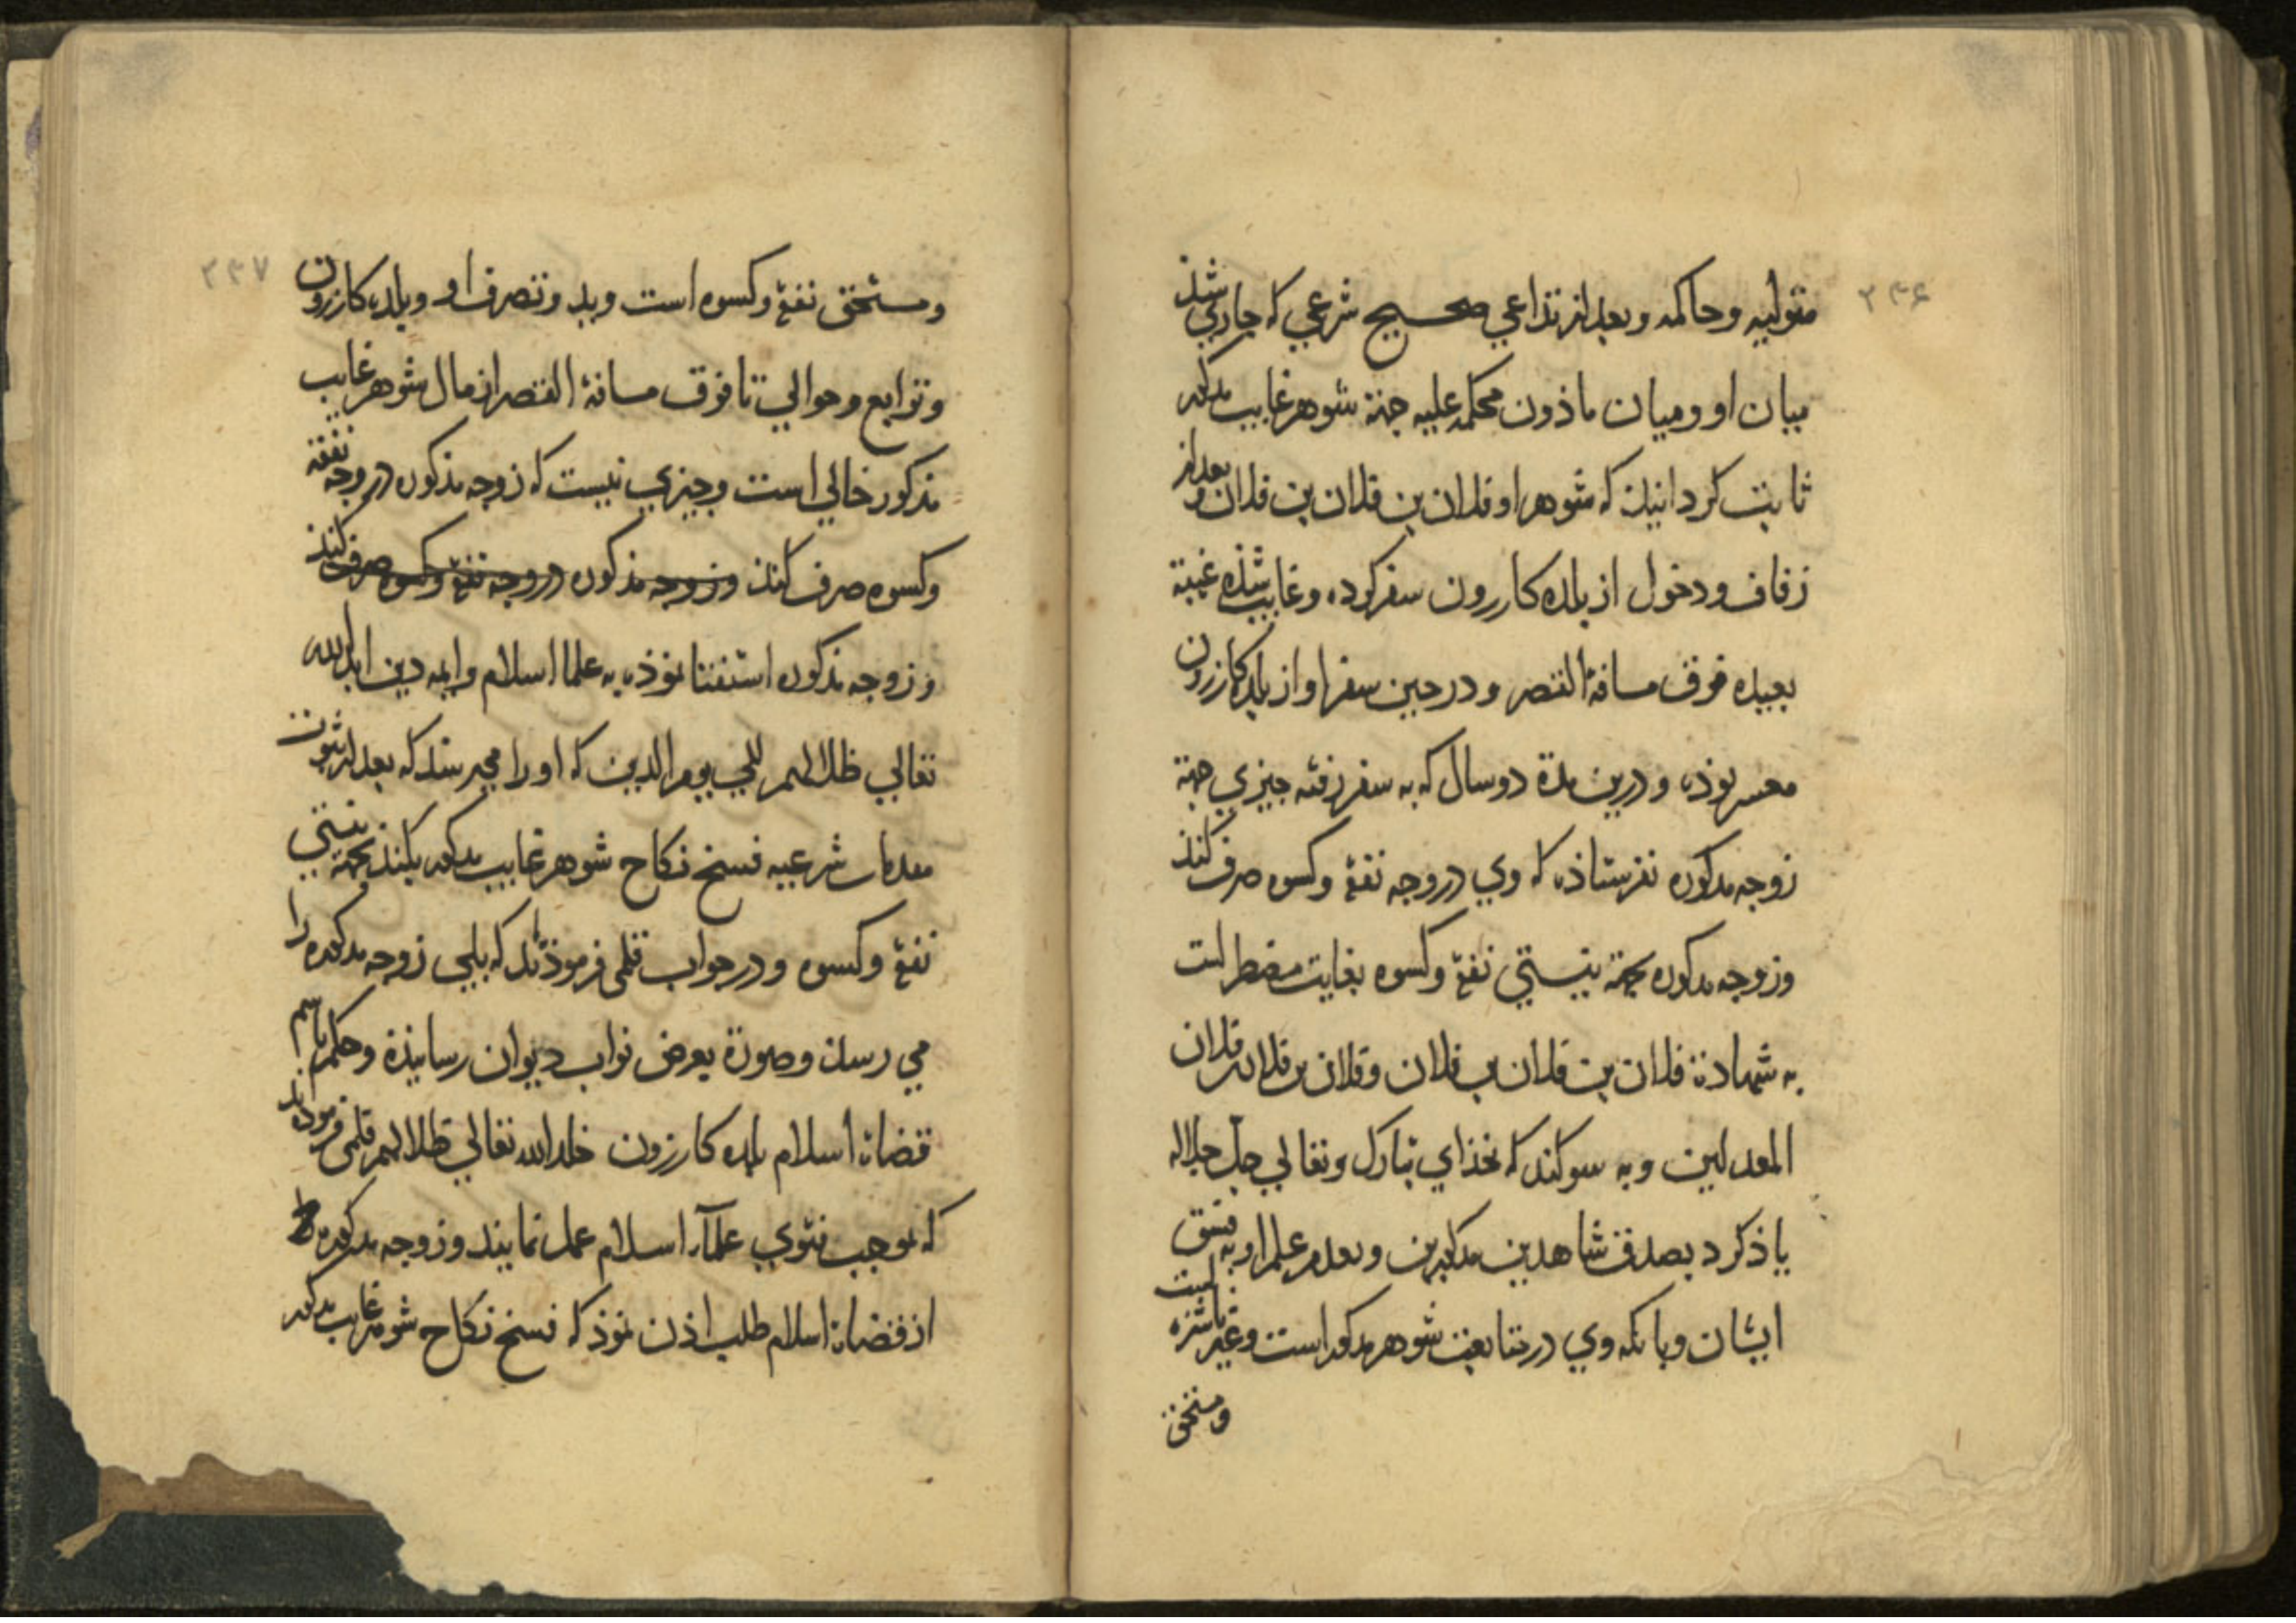 ۲۳۶
متولیه وحاکمه وبعد از تداعی صحیح شرعی که جاری شذ
میان او ومیان ماذون محکمه علیه جهة شوهر غایب مذکور
ثابت کردانید که شوهر او فلان بن فلان بن فلان و بعد از
زفاف ودخول از بلده کازرون سفر کرده وغایب شذه غیبة
بعیده فوق مسافة القصر ودر حین سفر او از بلده کازرون
معسر بوذه ودرین مدة دو سال که به سفر رفته چیزی جهة
زوجه مذکوره نفرستاذه که وی در وجه نفقة وکسوه صرف کند
وزوجه مذکوره بجهة نیستی نفقة وکسوه بغایت مضطر است
به شهادة فلان بن فلان بن فلان وفلان بن فلان بن فلان
المعدلین وبه سوکند که بخذای تبارک وتعالی جل جلاله
یاذ کرد بصدق شاهدین مذکورین وبعدم علم او به فسق
ایشان وبانکه وی در متابعت شوهر مذکور است وغیر ناشزه است
ومستحق
۲۳۷
ومستحق نفقة وکسوه است وبید وتصرف او وبلده کازرون
وتوابع وحوالی تا فوق مسافة القصر از مال شوهر غایب
مذکور خالی است وچیزی نیست که زوجه مذکوره در وجه نفقه
وکسوه صرف کند وزوجه مذکوره در وجه نفقة وکسوه صرف کند
وزوجه مذکوره استفتا نموذه به علما اسلام وایمه دین ابد الله
تعالی ظلالهم الی یوم الدین که او را میرسد که بعد از ثبوت
معدمات شرعیه فسخ نکاح شوهر غایب مذکور بکند بجهة نیستی
نفقة وکسوه ودر جواب قلمی فرموذند که بلی زوجه مذکوره را
می رسد وصورة بعرض نواب دیوان رسانیذه وحکم باسم
قضاة اسلام بلده کازرون خلد الله تعالی ظلالهم قلمی فرموده اند
که بموجب فتوی علمآء اسلام عمل نمایند وزوجه مذکوره
از قضاة اسلام طلب اذن نموذ که فسخ نکاح شوهر غایب مذکور